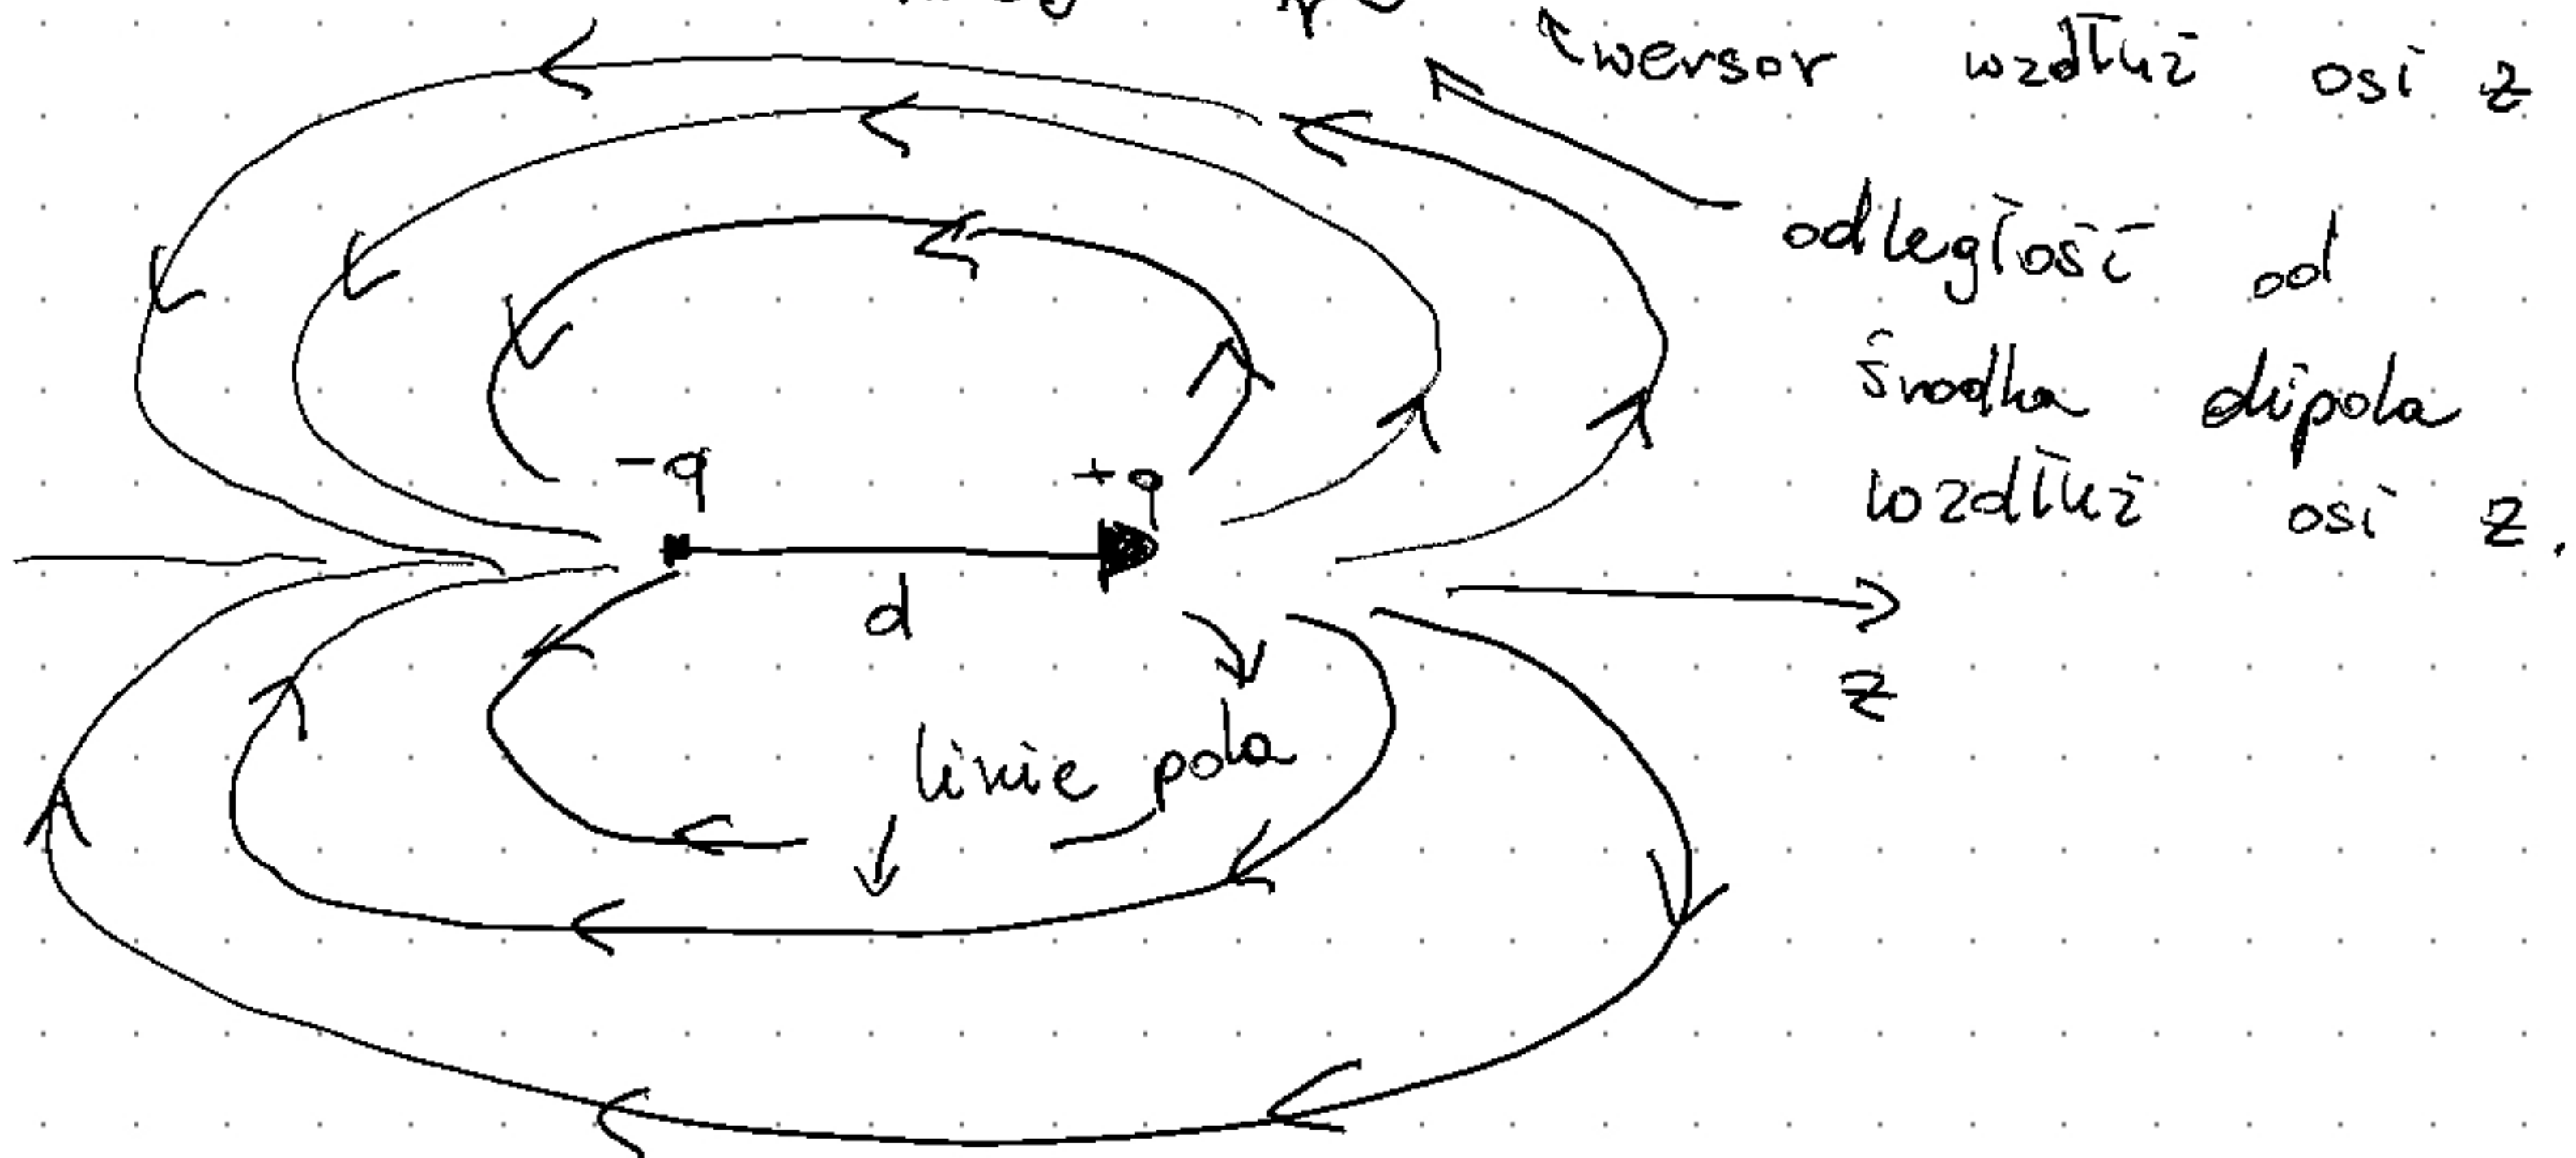 wersor wzdłuż osi z
odległość od
środka dipola
wzdłuż osi z.
-q +q
d
z
linie pola